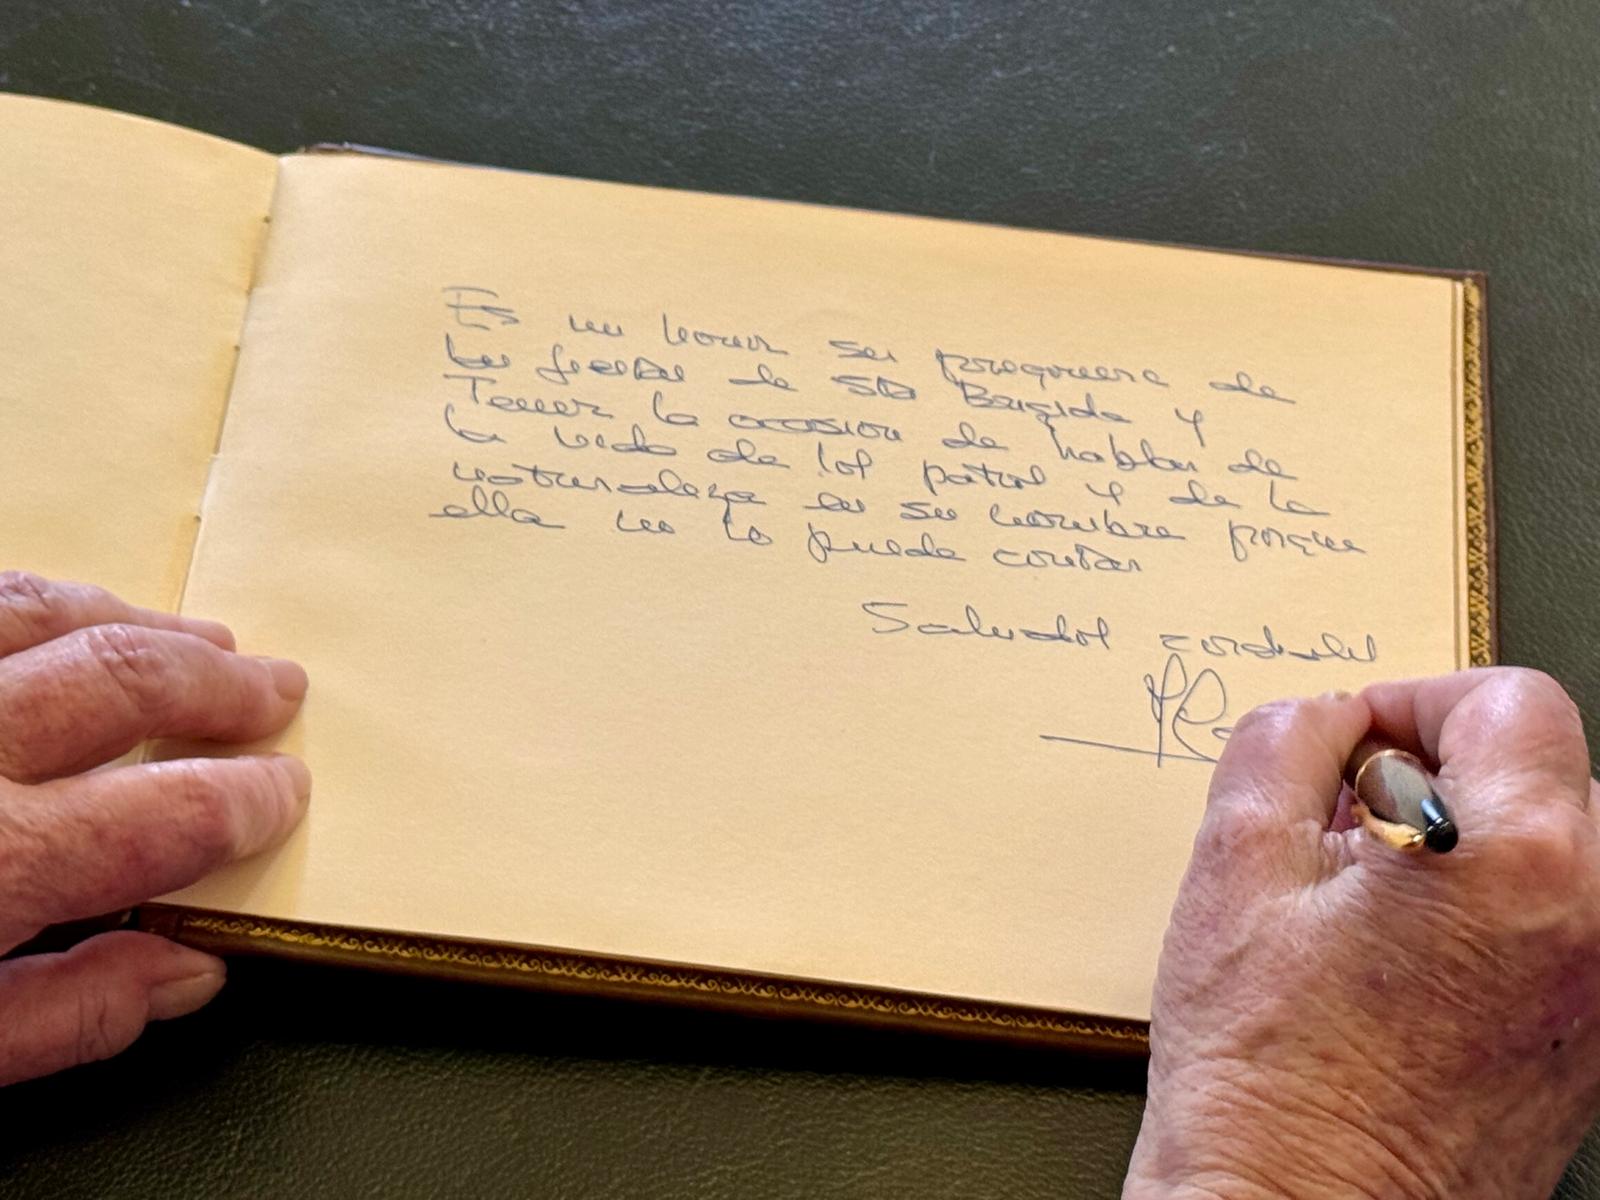 Es un honor ser pregonero de
las fiestas de Sta Brigida y
Tener la ocasion de hablar de
la vida de los patos y de la
naturaleza en su nombre porque
ella no lo puede contar
Salvador